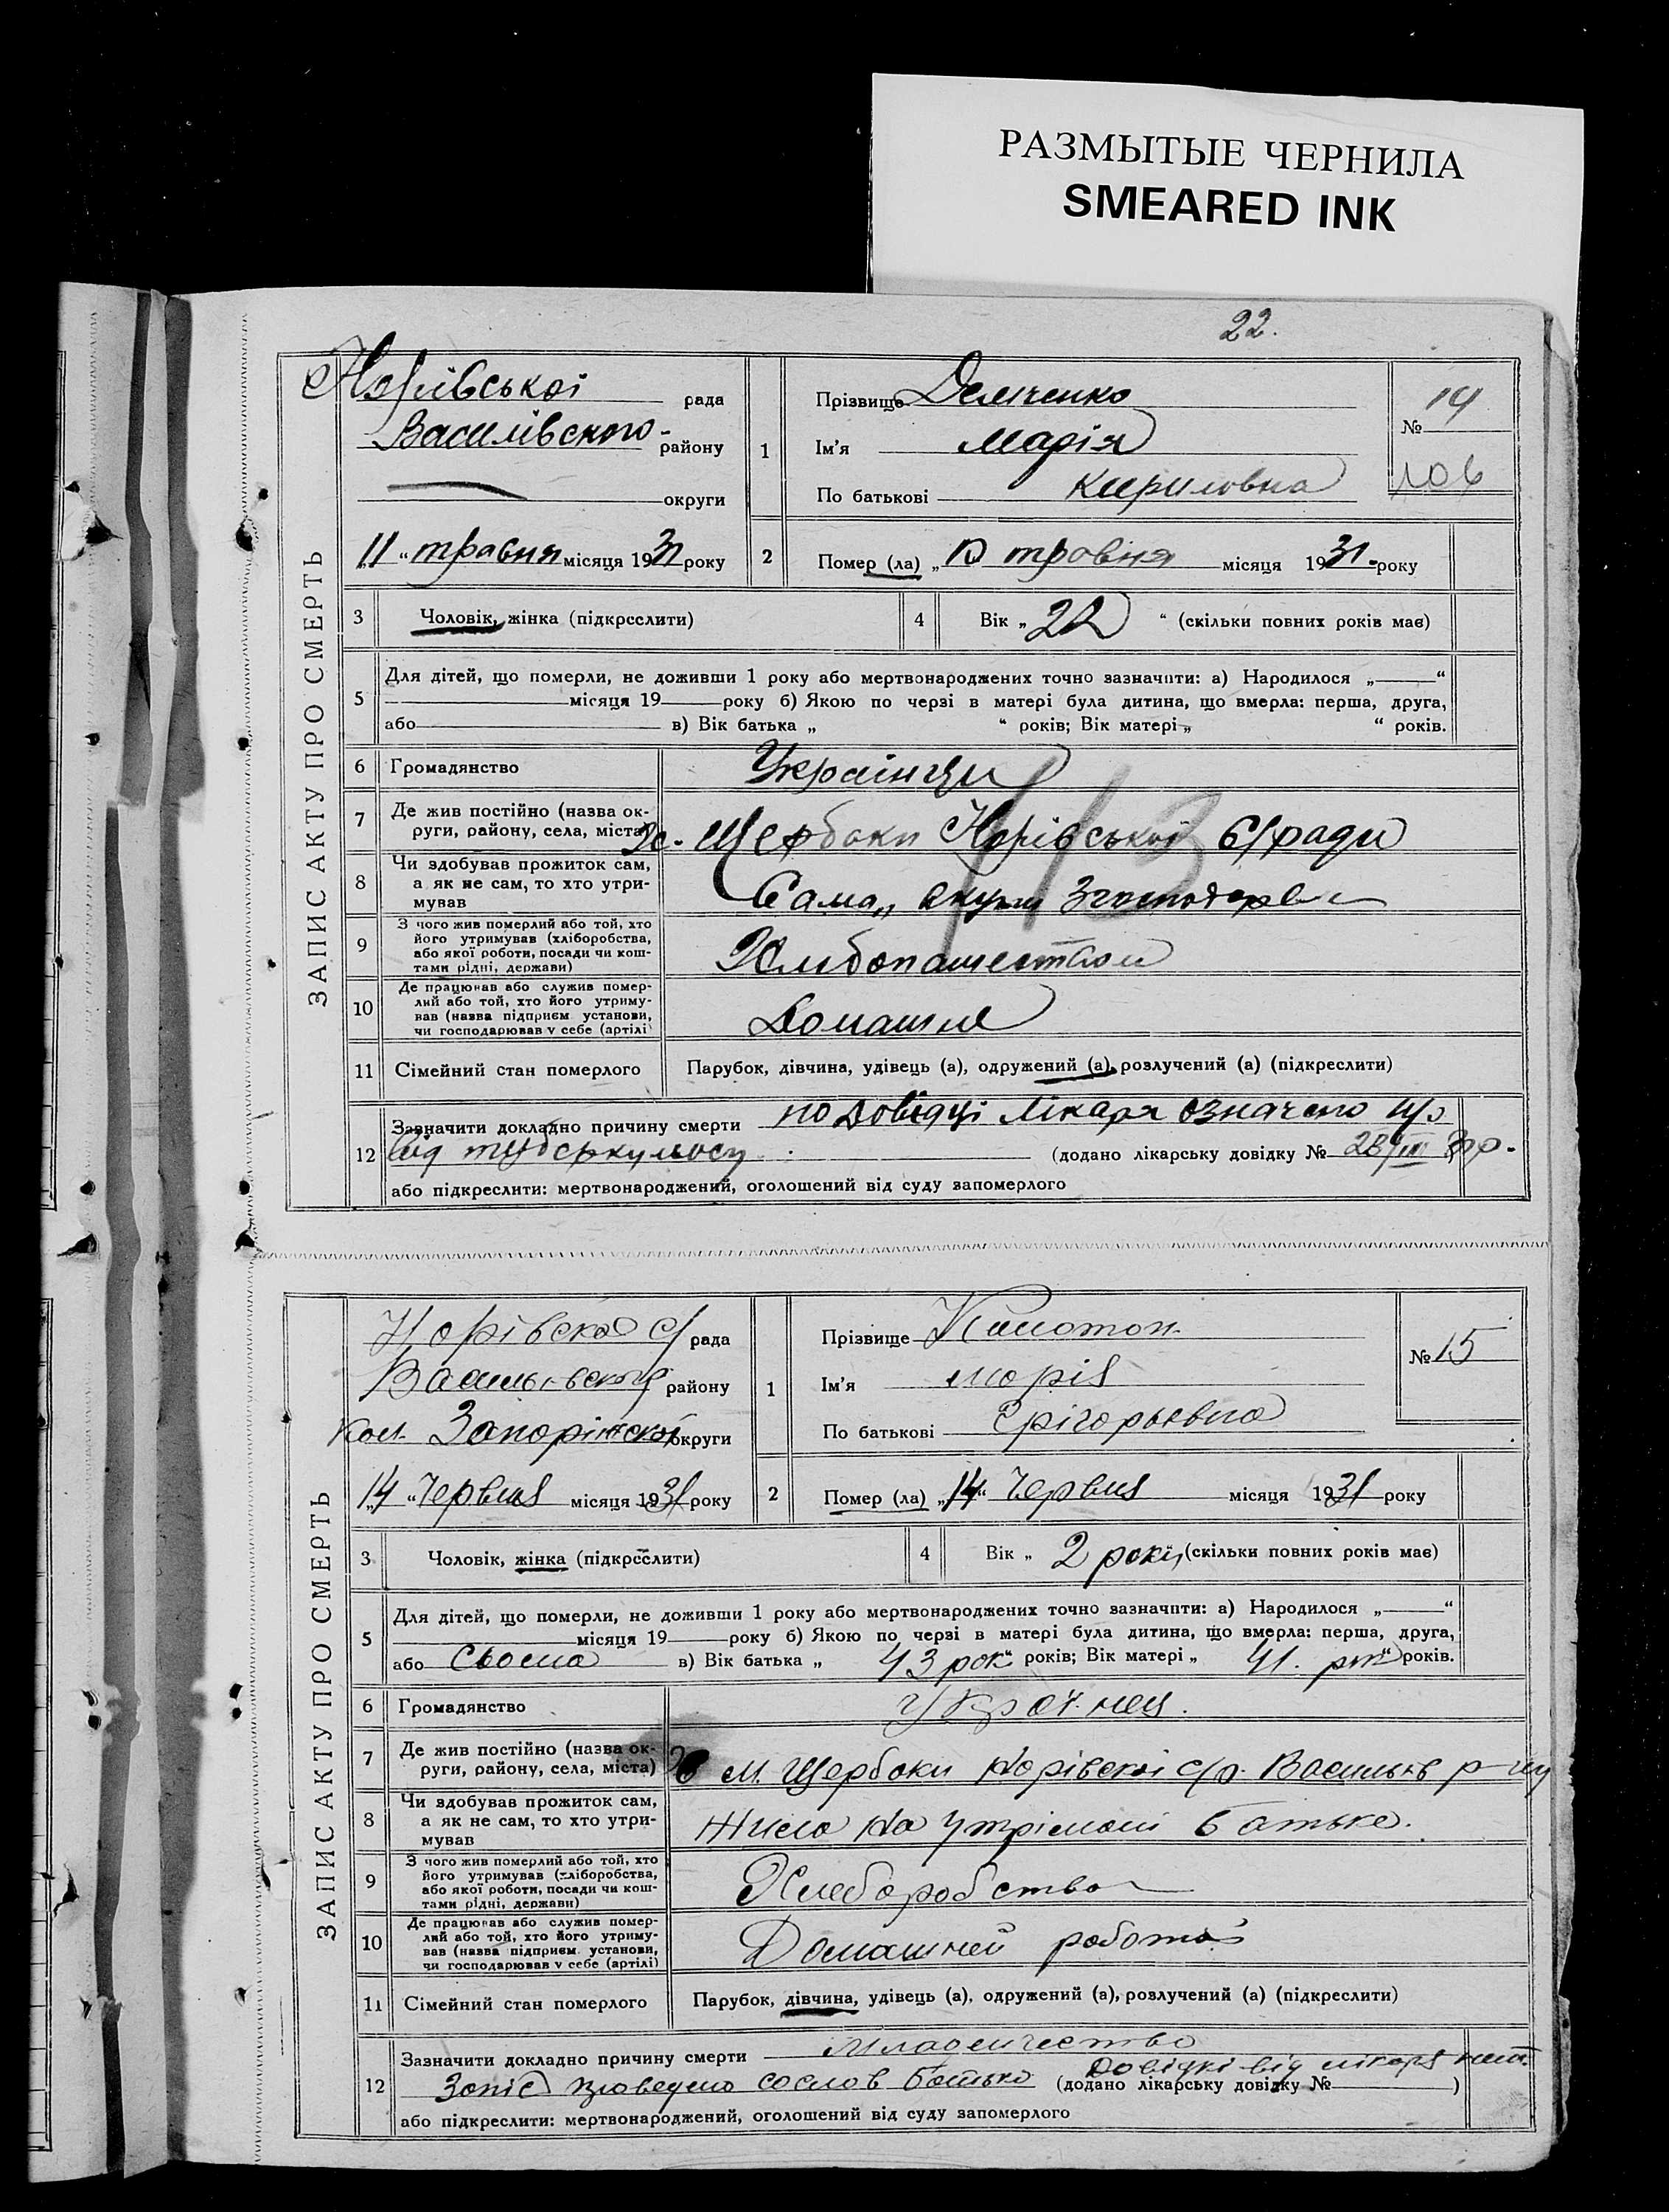 РАЗМЫТЫЕ ЧЕРНИЛА
SMEARED INK
22.
ЗАПИС АКТУ ПРО СМЕРТЬ
Норівської рада
Василівського району
округи
„11“ травня місяця 1931 року
1 Прізвище Демченко
Ім'я Марія
По батькові Кириловна
№ 14
106
2 Помер (ла) „10 травня місяця 1931 року
3 Чоловік, жінка (підкреслити)
4 Вік „22“ (скільки повних років має)
5 Для дітей, що померли, не доживши 1 року або мертвонароджених точно зазначити: а) Народилося „ “
місяця 19 року б) Якою по черзі в матері була дитина, що вмерла: перша, друга,
або в) Вік батька „ “ років; Вік матері „ “ років.
6 Громадянство Українци
7 Де жив постійно (назва ок-
руги, району, села, міста) х. Щербаки Норівської с/ради
113
8 Чи здобував прожиток сам,
а як не сам, то хто утри-
мував
Сама
9 З чого жив померлий або той, хто
його утримував (хліборобства,
або якої роботи, посади чи кош-
тами рідні, держави)
Хлибопашеством
10 Де працював або служив помер-
лий або той, хто його утриму-
вав (назва підприєм. установи,
чи господарював у себе (артілі)
Домашне
11 Сімейний стан померлого Парубок, дівчина, удівець (а), одружений (а), розлучений (а) (підкреслити)
12 Зазначити докладно причину смерти по довідці лікаря означено що
від туберкульосу (додано лікарську довідку № 28/III 31р.
або підкреслити: мертвонароджений, оголошений від суду запомерлого
ЗАПИС АКТУ ПРО СМЕРТЬ
Норівска с/ рада
Васильевского району
кол. Запоріжской округи
„14“ Червня місяця 1931 року
1 Прізвище
Ім'я Марія
По батькові Грігорьевна
№ 15
2 Помер (ла) „14“ Червня місяця 1931 року
3 Чоловік, жінка (підкреслити)
4 Вік „ 2 роки (скільки повних років має)
5 Для дітей, що померли, не доживши 1 року або мертвонароджених точно зазначити: а) Народилося „ “
місяця 19 року б) Якою по черзі в матері була дитина, що вмерла: перша, друга,
або сьома в) Вік батька „ 43 рок“ років; Вік матері „ 41. рок“ років.
6 Громадянство Украінец.
7 Де жив постійно (назва ок-
руги, району, села, міста) Щербаки Норівскої с/р. Васильев р-ну
8 Чи здобував прожиток сам,
а як не сам, то хто утри-
мував
Жила на утрімані батька.
9 З чого жив померлий або той, хто
його утримував (хліборобства,
або якої роботи, посади чи кош-
тами рідні, держави)
Хлеборобство
10 Де працював або служив помер-
лий або той, хто його утриму-
вав (назва підприєм. установи,
чи господарював у себе (артілі)
Домашней работой
11 Сімейний стан померлого Парубок, дівчина, удівець (а), одружений (а), розлучений (а) (підкреслити)
12 Зазначити докладно причину смерти Младенчество
Довідкі від лікаря нет.
Запісь проведено со слов батька (додано лікарську довідку № )
або підкреслити: мертвонароджений, оголошений від суду запомерлого